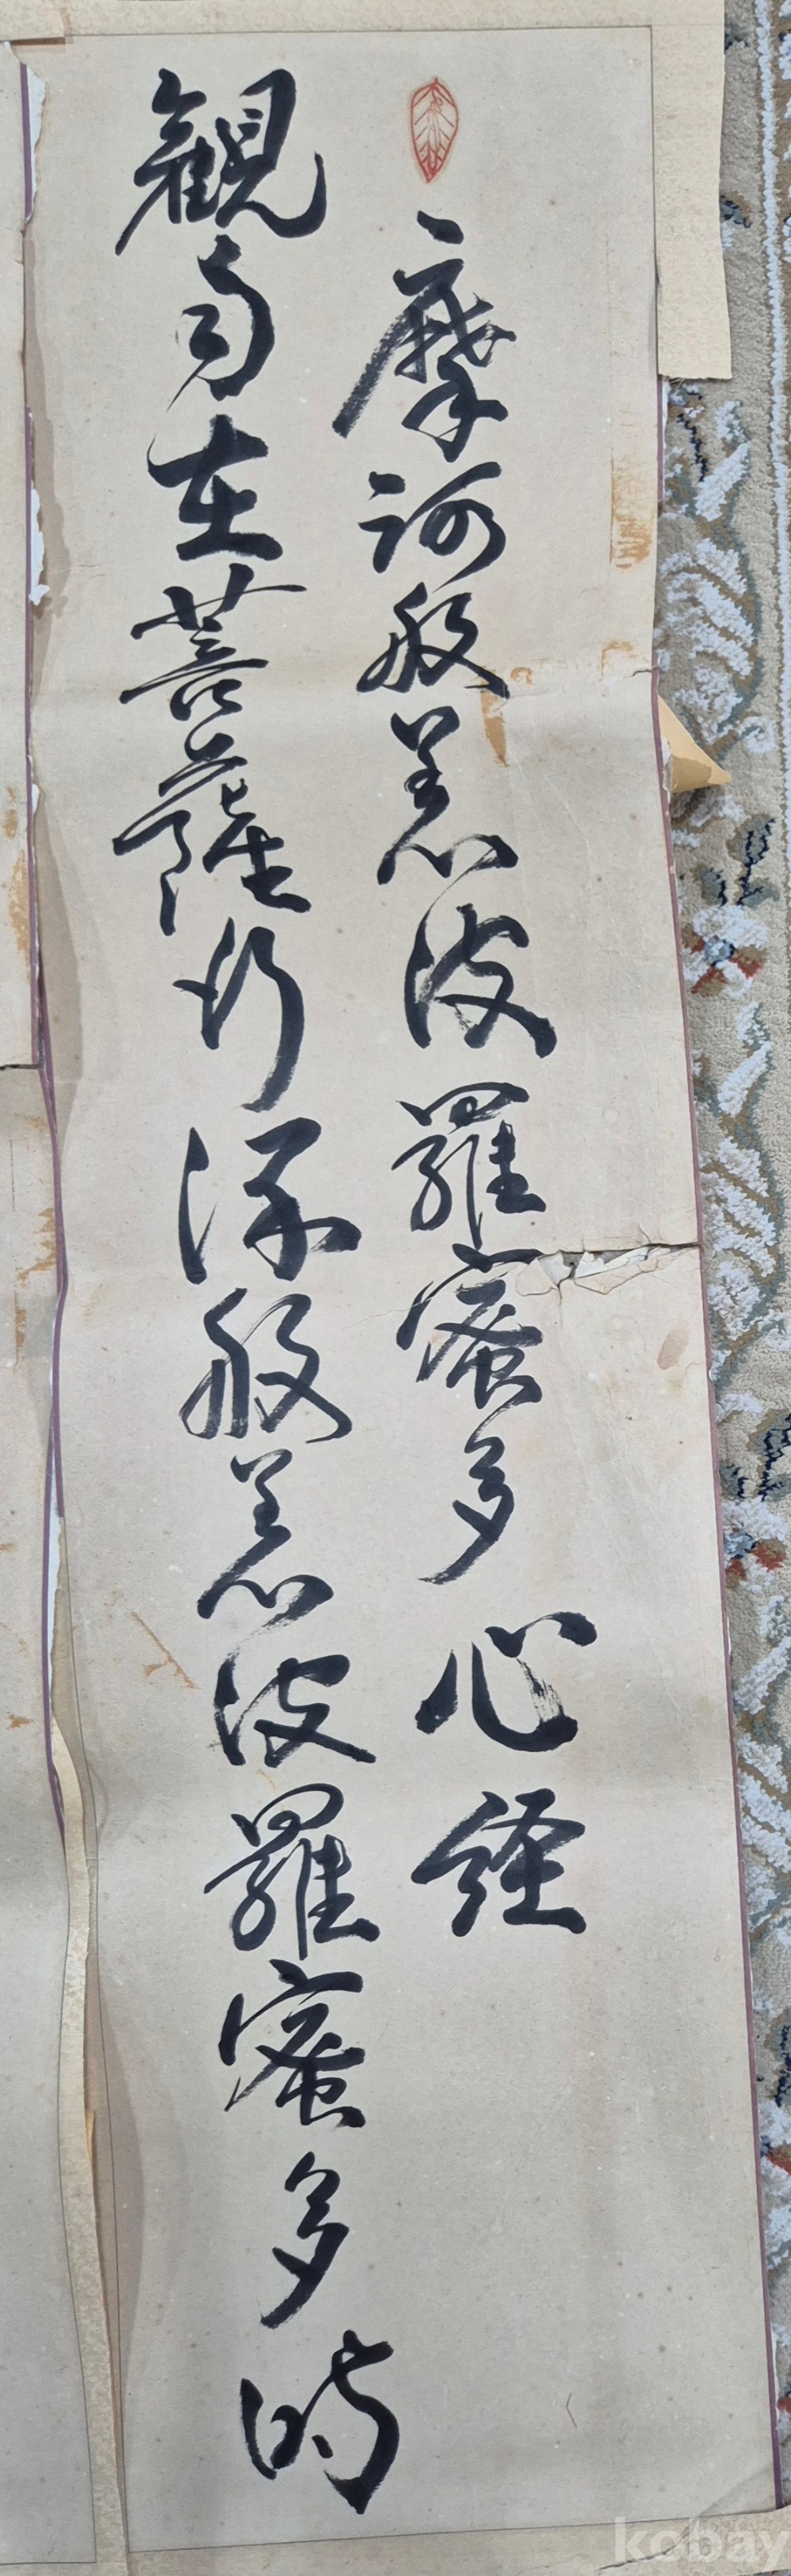 摩訶般若波羅蜜多心経
観自在菩薩行深般若波羅蜜多時
kobay